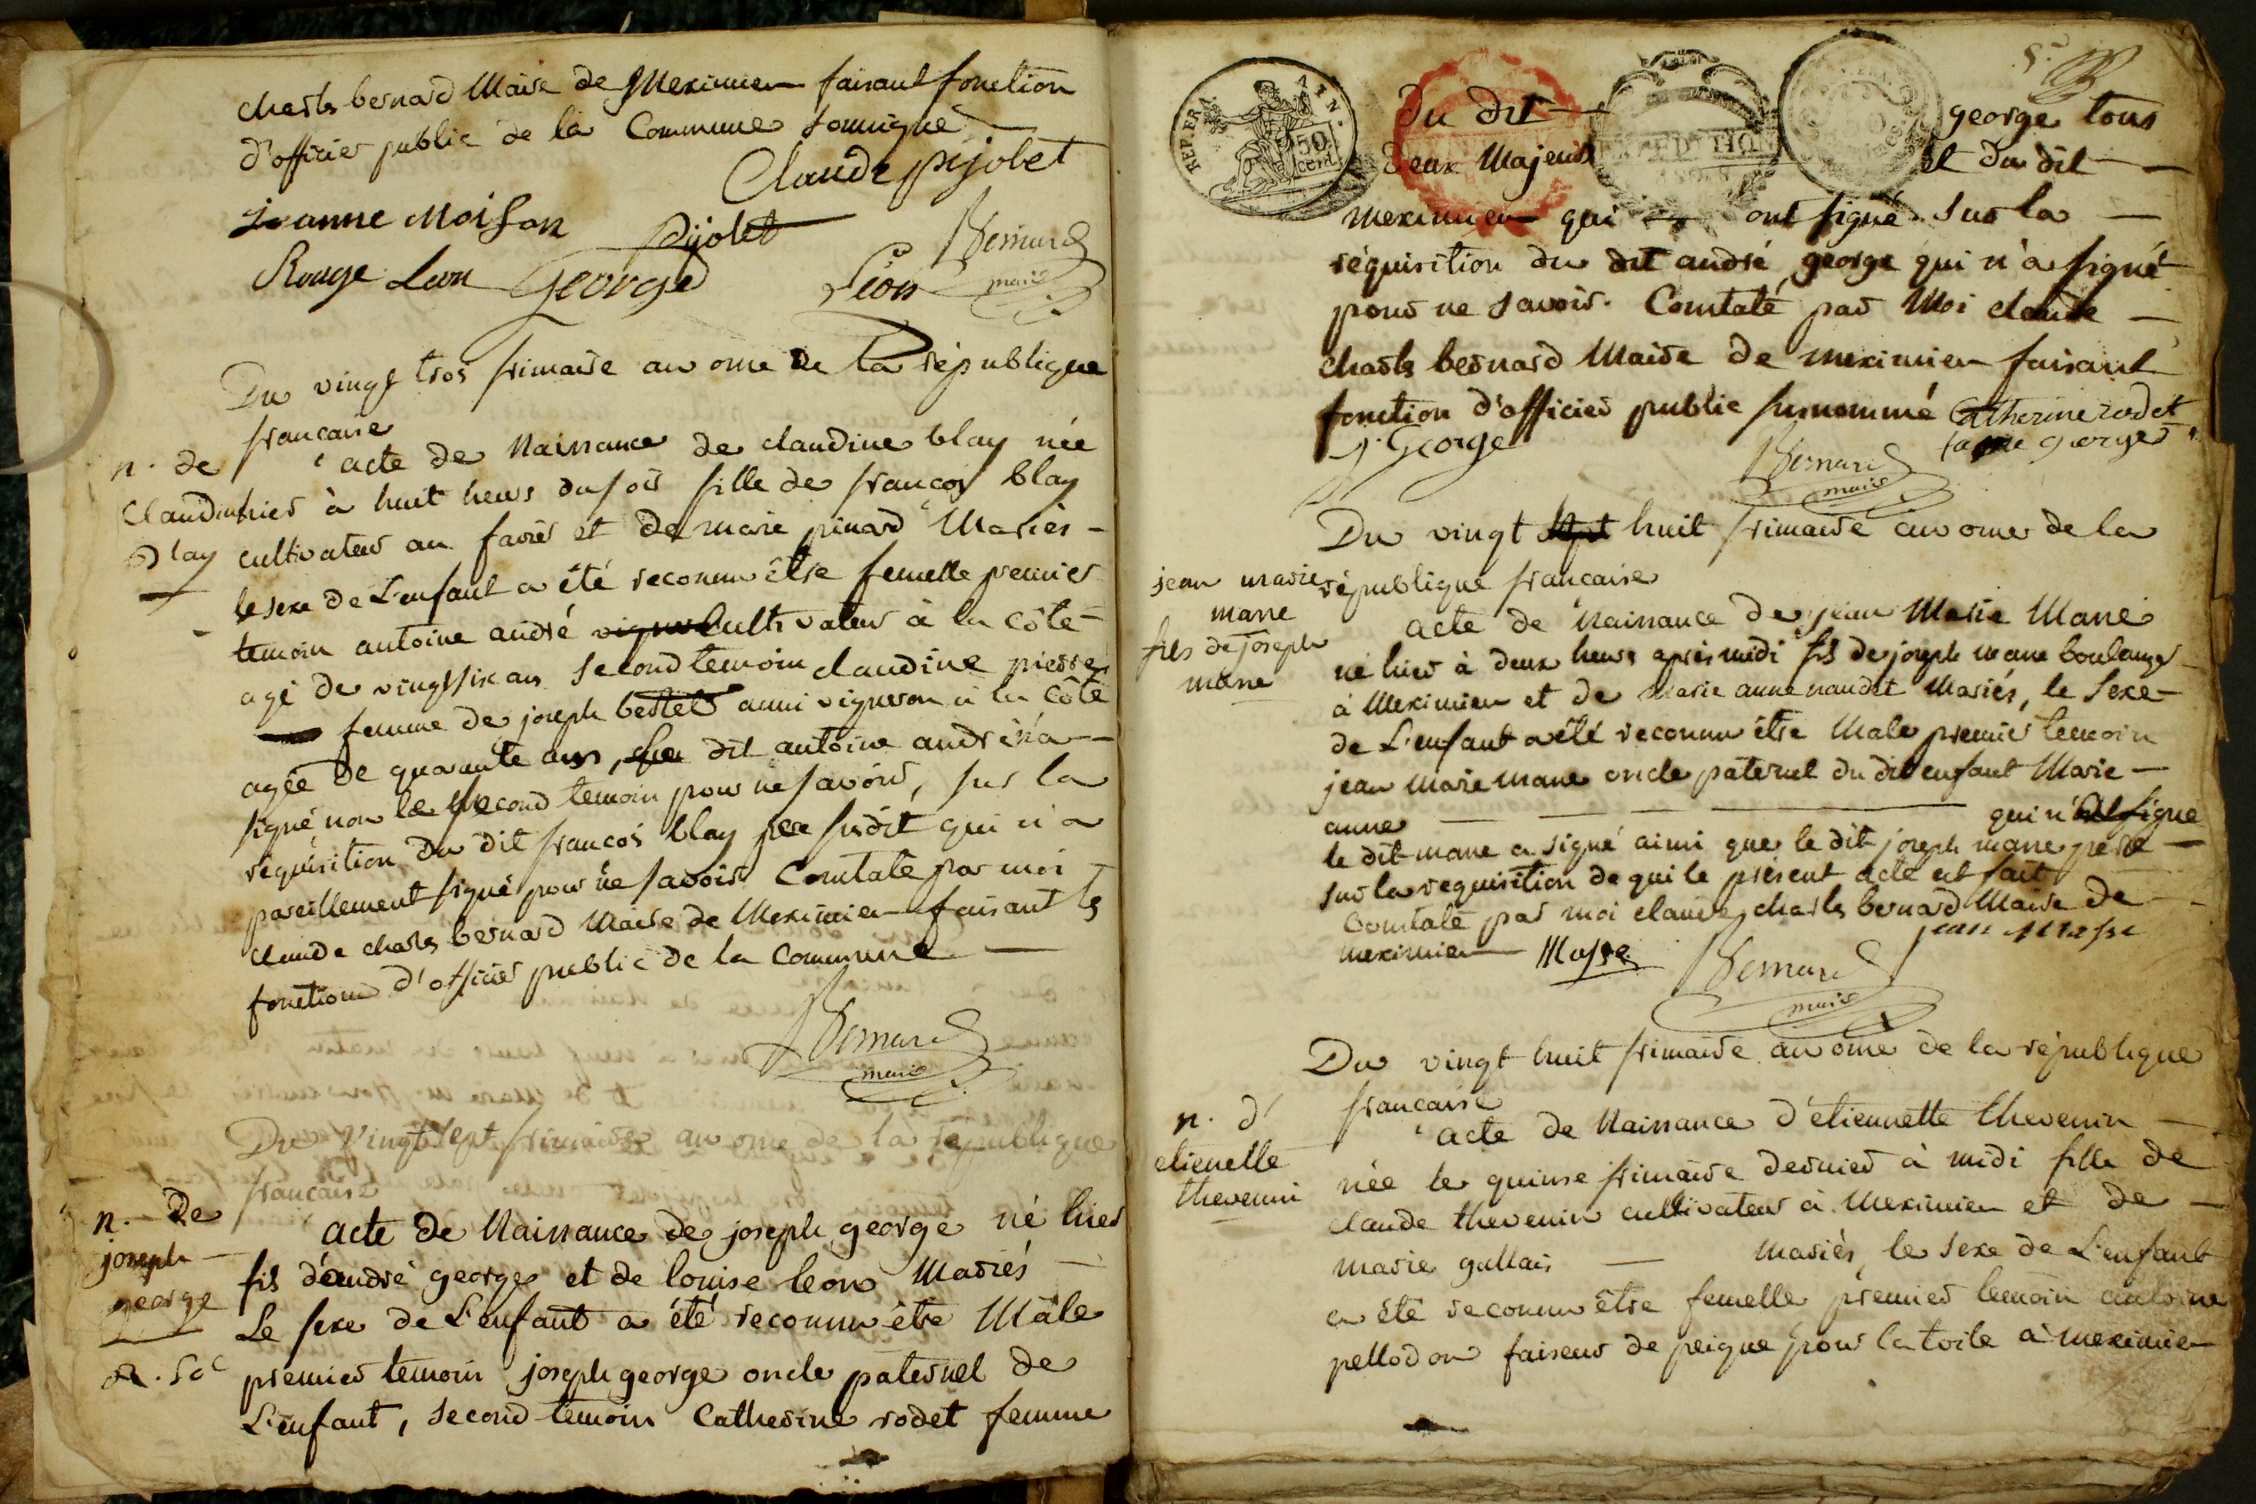 charles bernard Maire de Meximieu faisant fonction
d'officier public de la Commune soussigné
Claude pijolet
jeanne Moison pijolet Bernard
Rouge Leon George Léon maire
Du vingt trois frimaire an onze de la république
francaise
acte de Naissance de claudine blay née
n. de
Claudine
blay
hier à huit heurs du soir fille de francois blay
cultivateur au favier et de marie pinard Mariés
le sexe de L'enfant a été reconnu être femelle premier
temoin antoine andré cultivateur à la côte
agé de vingt six ans second temoin claudine pierre
femme de joseph bettet aussi vigneron à la côte
agée de quarante ans, le dit antoine andré n'a
signé non le second temoin pour ne savoir, sur la
réquisition du dit francois blay pere susdit qui n'a
pareillement signé pour ne savoir Constaté par moi
claude charles bernard Maire de Meximieu faisant les
fonctions d'officier public de la Commune
Bernard
maire
Du Vingt sept frimaire an onze de la république
francaise
n. de
joseph
george
acte de Naissance de joseph george né hier
fils d'andré george et de louise leon Mariés
Le sexe de L'enfant a été reconnu être Mâle
premier temoin joseph george oncle paternel de
L'enfant, second temoin Catherine rodet femme
REP. FRA. 50 cent.
du dit george tous
deux Majeurs et du dit
meximieu qui ont signé sur la
réquisition du dit andré george qui n'a signé
pour ne savoir. Constaté par Moi claude
charles bernard Maire de meximieu faisant
fonction d'officier public susnommé Catherine rodet
j. George Bernard fame george
maire
Du vingt sept huit frimaire an onze de la
république francaise
jean marie
masse
fils de joseph
masse
acte de Naissance de jean Marie Masse
né hier à deux heurs après midi fils de joseph masse boulanger
à Meximieu et de marie anne naudet Mariés, le sexe
de L'enfant a été reconnu être Male premier temoin
jean marie masse oncle paternel du dit enfant Marie
anne qui n'a signé
le dit masse a signé ainsi que le dit joseph masse père
sur la requisition de qui le présent acte est fait
Constaté par moi claude charles bernard Maire de
meximieu Masse Bernard jean masse
maire
Du vingt huit frimaire an onze de la république
francaise
n. d'
etienette
thevenin
acte de Naissance d'étiennette thevenin
née le quinze frimaire dernier à midi fille de
claude thevenin cultivateur à Meximieu et de
marie gallais Mariés, le sexe de L'enfant
a été reconnu être femelle premier temoin antoine
pellodon faiseur de peigne pour la toile à meximieu